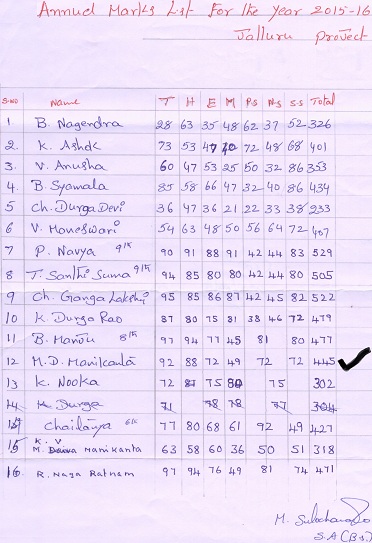 Annual Marks List For the Year 2015-16
Jalluru project
S.NO Name T H E M P.s N.s S.S Total
1 B. Nagendra 28 63 35 48 62 37 52 326
2. K. Ashok 73 53 47 70 72 48 68 401
3. V. Anusha 60 47 53 25 50 32 86 353
4. B. Syamala 85 58 66 47 32 40 86 434
5 Ch. Durga Devi 36 47 36 21 22 33 38 233
6. V. Maneswari 54 63 48 50 56 64 72 407
7 P. Navya 90 91 88 91 42 44 83 529
8 T. Santhi Suma 94 85 80 80 42 44 80 505
9 Ch. Ganga Lakshmi 95 85 86 87 42 45 82 522
10 K. Durga Rao 87 80 75 81 38 46 72 479
11 B. 97 94 77 45 81 80 477
12 M.D. Manikanta 92 88 72 49 72 72 445
13 K. Nooka 72 87 75 80 75 302
14 K. Durga 71 78 78 77 304
Chaitanya 77 80 68 61 92 49 427
15 K. V M. Manikanta 63 58 60 36 50 51 318
16. R. Naga Ratnam 97 94 76 49 81 74 471
M.
S.A (B.S.)